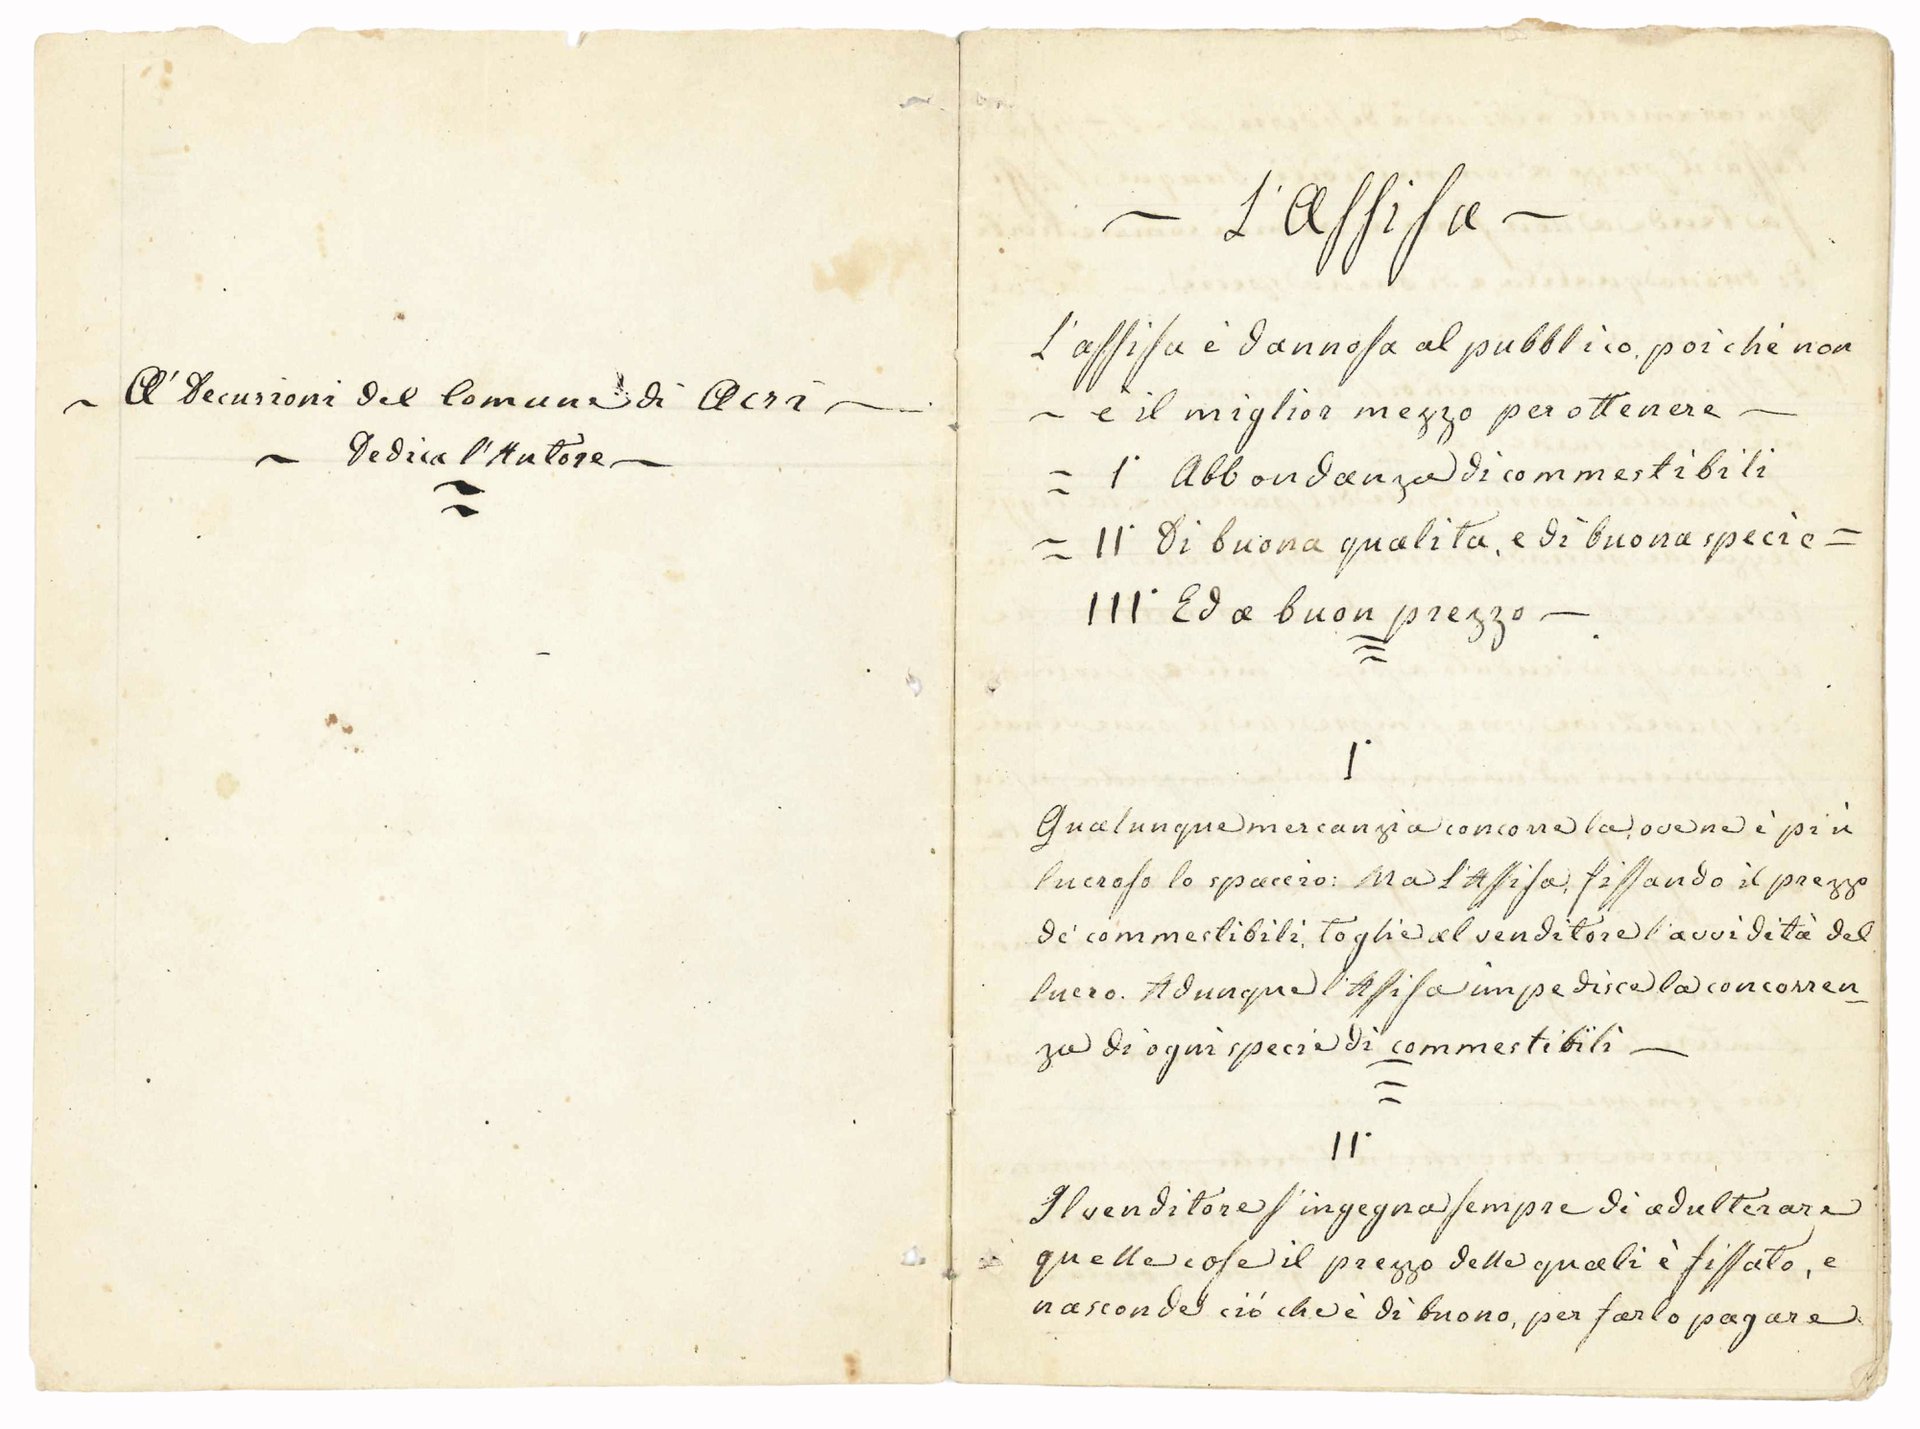 ~ A' Decurioni del Comune di Acri ~
~ Dedica l'Autore ~
~ L'Assisa ~
L'assisa è dannosa al pubblico, poichè non
~ è il miglior mezzo per ottenere ~
= I° Abbondanza di commestibili
= II° Di buona qualita, e di buona specie =
III° Ed a buon prezzo ~
I°
Qualunque mercanzia concorre là, ove ne è più
lucroso lo spaccio: Ma l'Assisa, fissando il prezzo
de' commestibili, toglie al venditore l'avvidità del
lucro. Adunque l'Assisa impedisce la concorren_
za di ogni specie di commestibili ~
II°
Il venditore s'ingegna sempre di adulterare
quelle cose il prezzo delle quali è fissato, e
nasconde ciò che è di buono, per farlo pagare